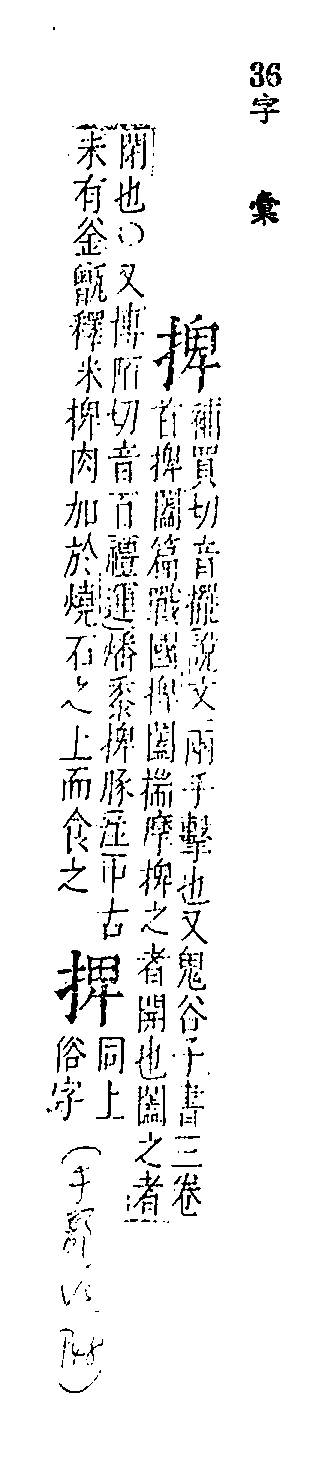 36字 彙
捭
補買切音擺說文兩手擊也又鬼谷子書三卷
首捭闔篇戰國捭闔揣摩捭之者開也闔之者
閉也○又博陌切音百禮運燔黍捭豚註中古
未有釜甑釋米捭肉加於燒石之上而食之
同上
俗字
(手部 P48)